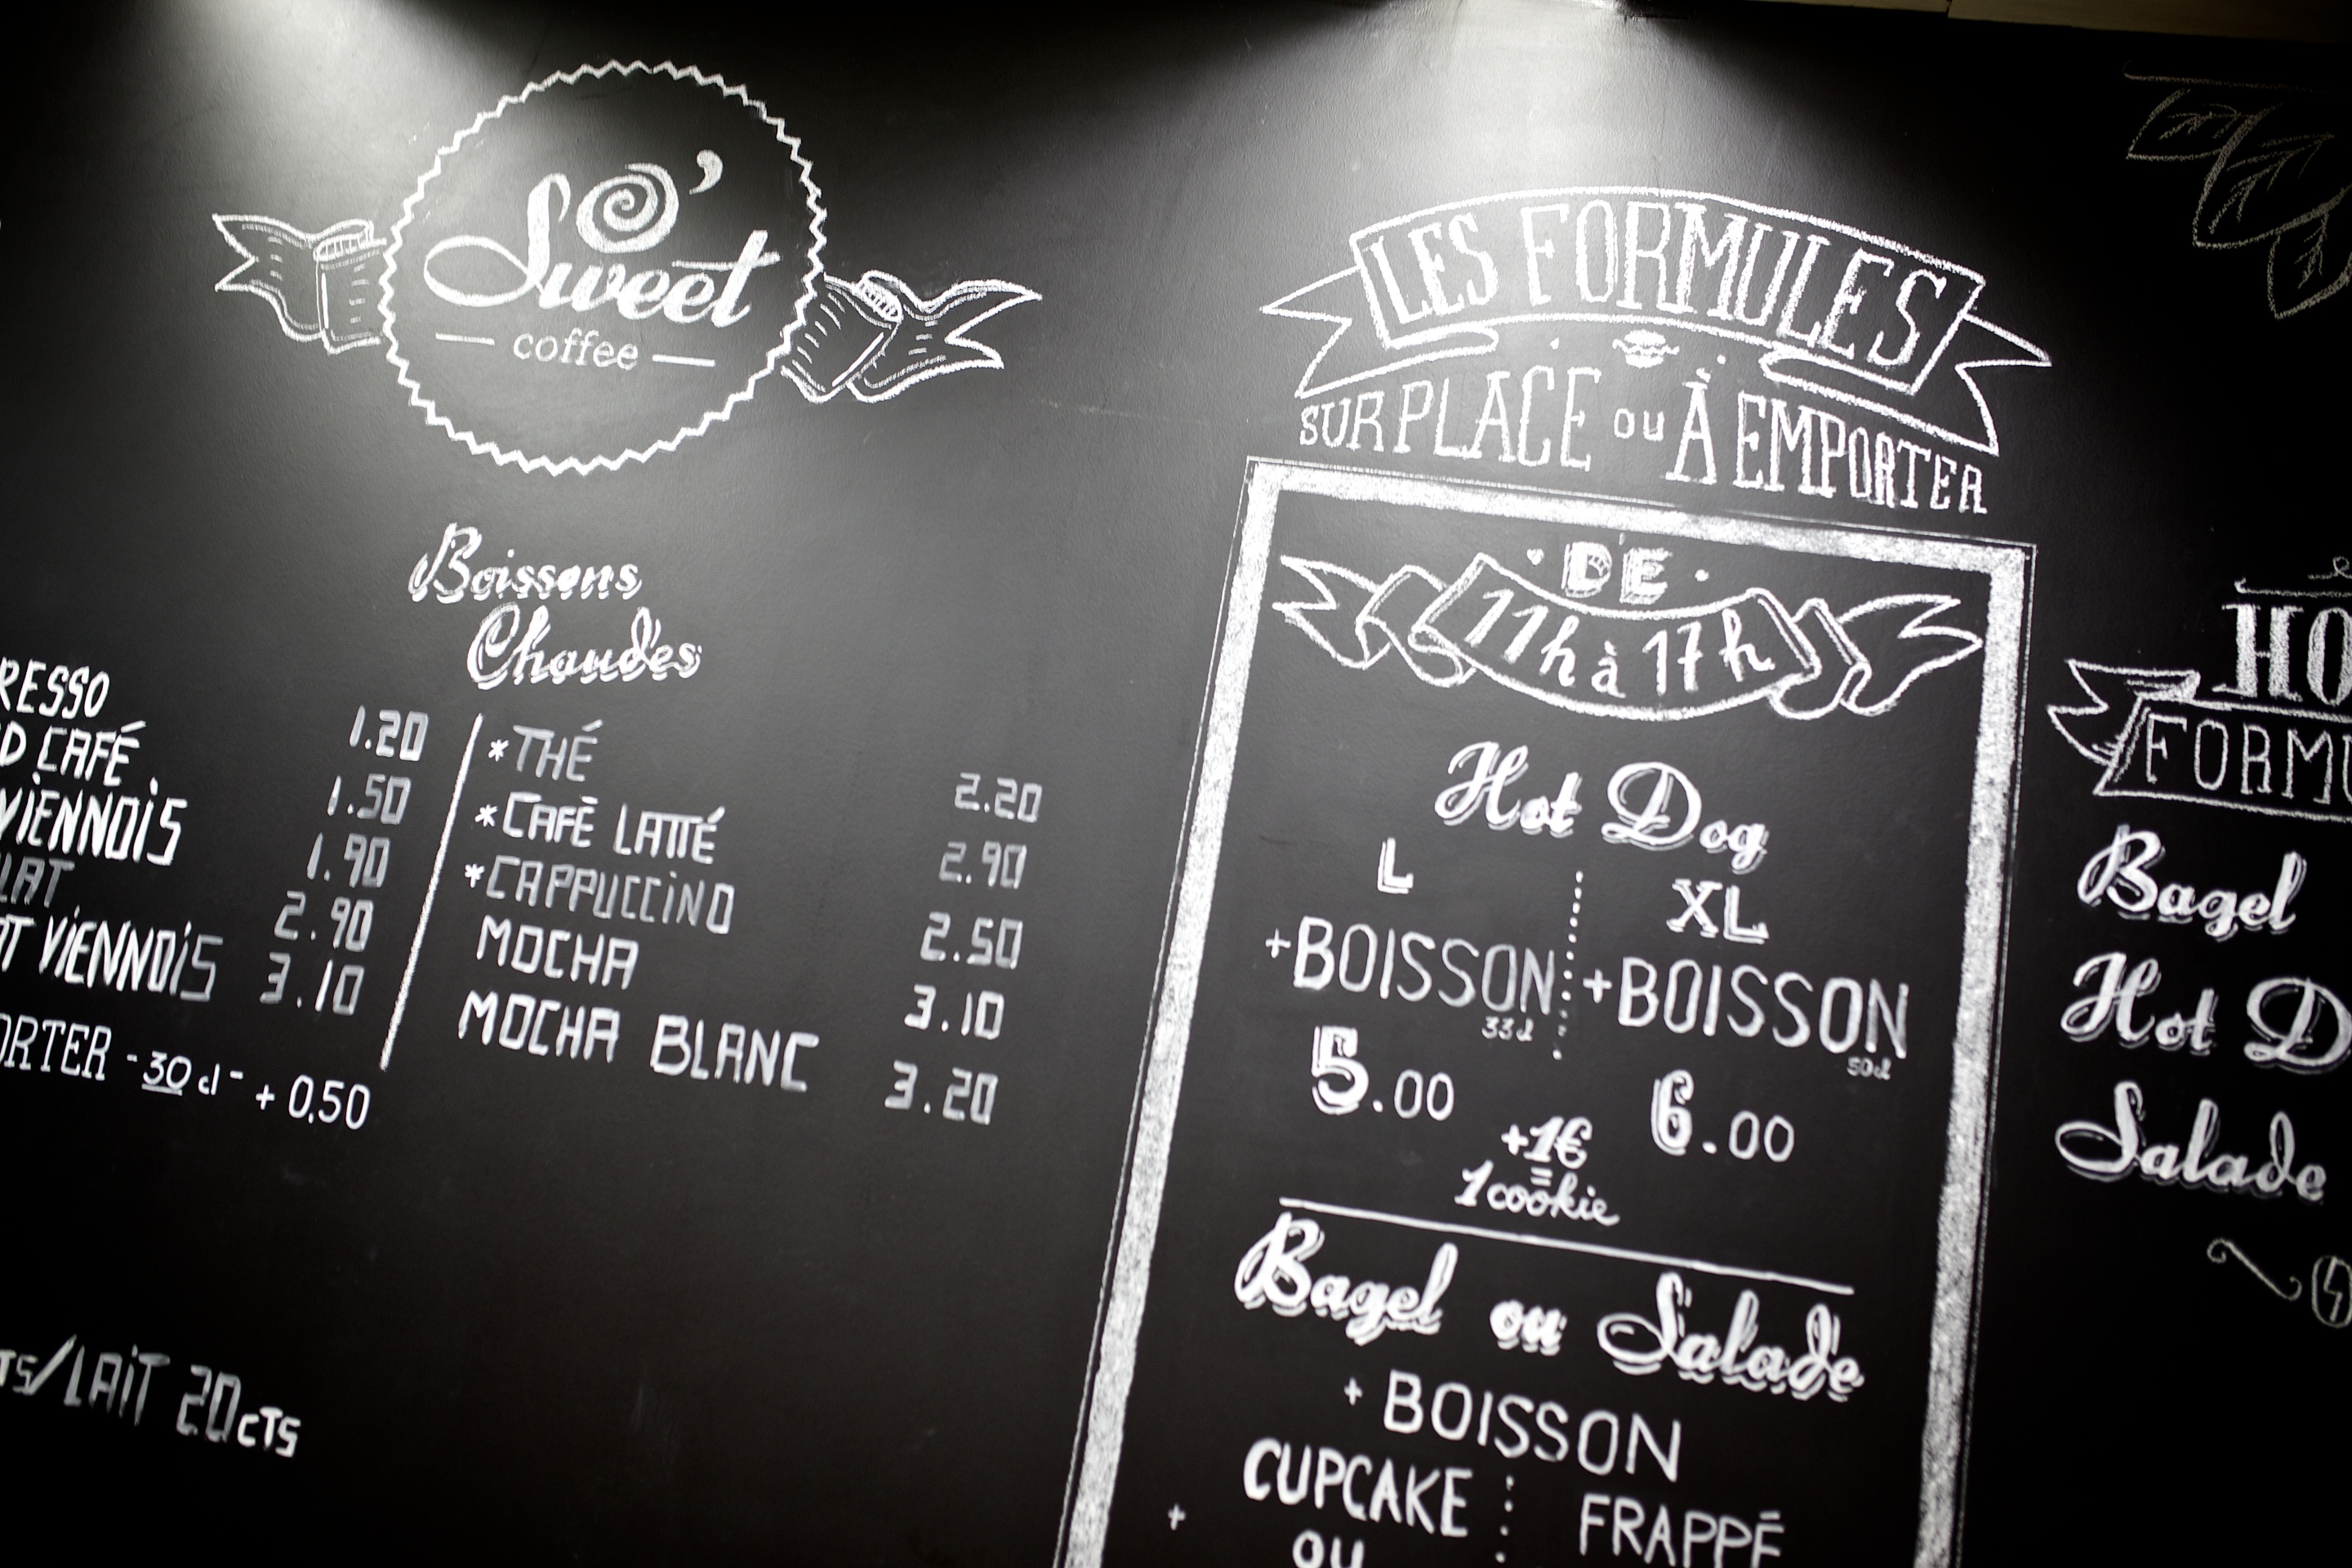 O'
Sweet
coffee
Boissons
Chaudes
RESSO 1.20
D CAFÉ 1.50
VIENNOIS 1.90
LAT 2.90
T VIENNOIS 3.10
ORTER - 30 cl - + 0,50
TS/LAIT 20CTS
*THÉ 2.20
*CAFÉ LATTÉ 2.90
*CAPPUCCINO 2.50
MOCHA 3.10
MOCHA BLANC 3.20
LES FORMULES
SUR PLACE OU À EMPORTER
DE
11h à 17h
Hot Dog
L XL
+BOISSON +BOISSON
33cl 50cl
5.00 6.00
+1€
=
1 cookie
Bagel ou Salade
+ BOISSON
CUPCAKE FRAPPÉ
+
OU
HO
FORMU
Bagel
Hot D
Salade